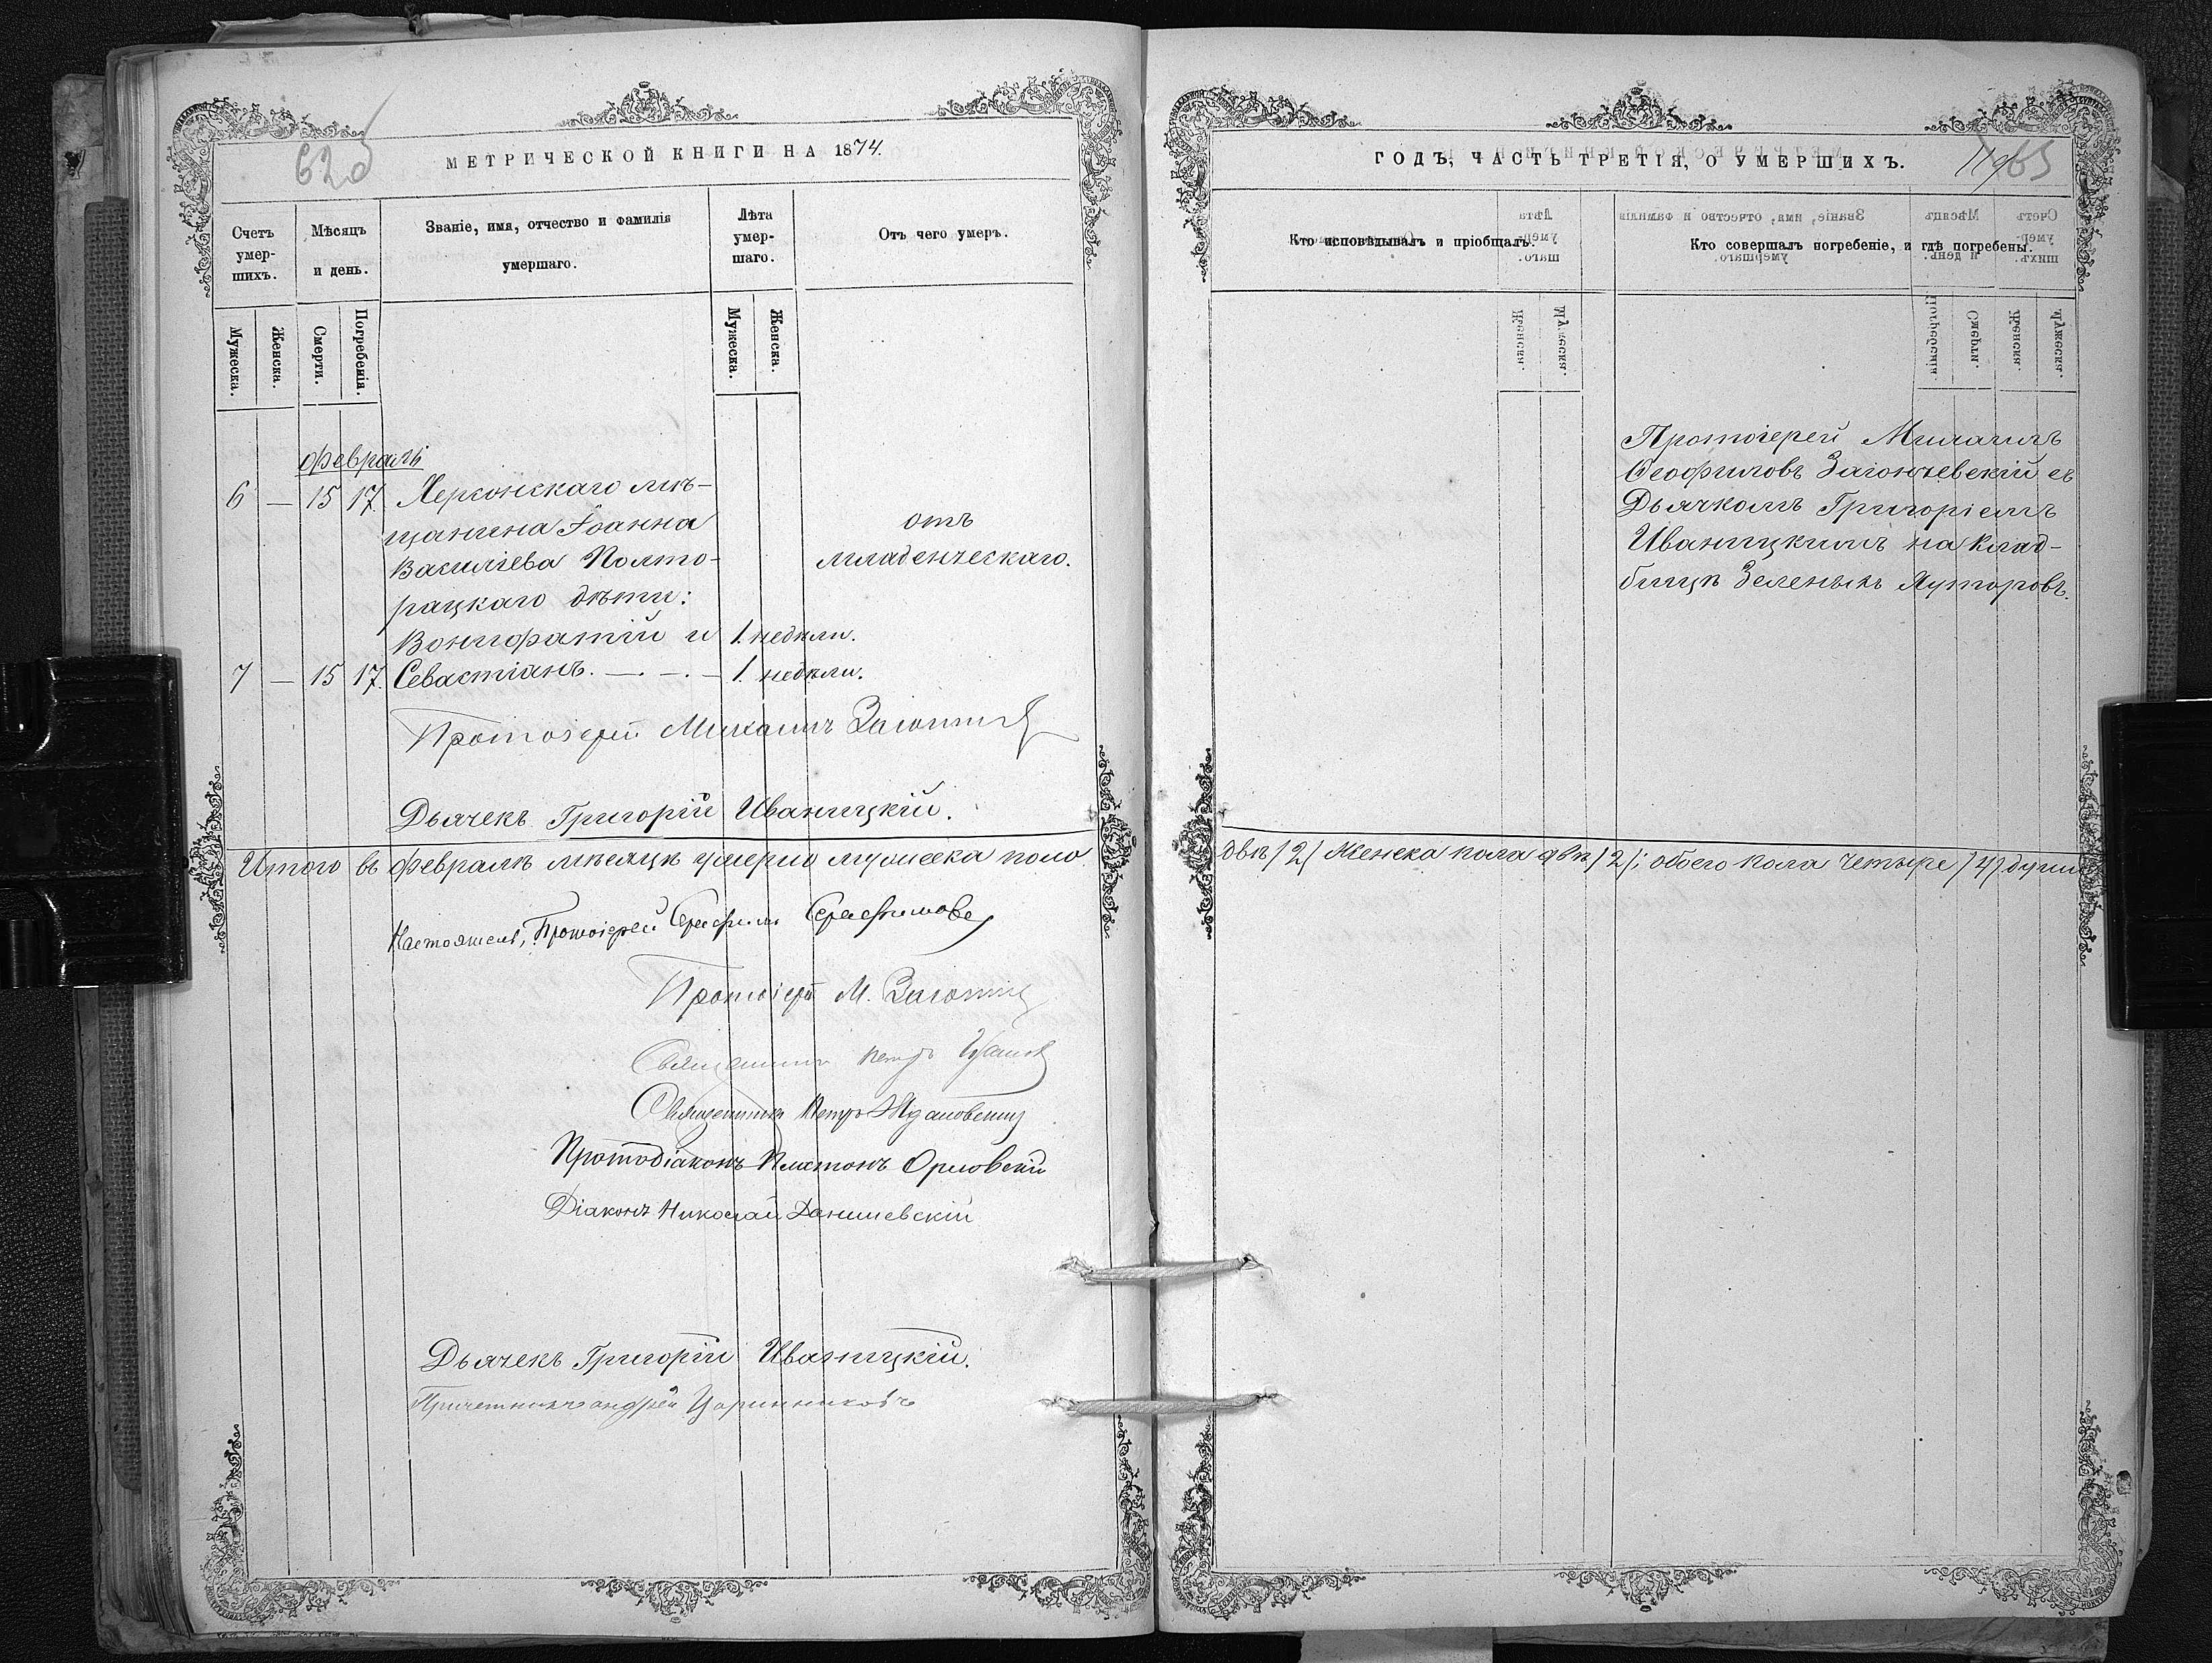 62об
МЕТРИЧЕСКОЙ КНИГИ НА 1874.
Счетъ умер-шихъ.
Мѣсяцъ и день.
Званіе, имя, отчество и фамилія умершаго.
Лѣта умер-шаго.
Отъ чего умеръ.
Мужеска.
Женска.
Смерти.
Погребенія.
Мужеска.
Женска.
Февраль
6 — 15 17. Херсонскаго мѣ-
щанина Іоанна
Василіева Полто-
рацкаго дѣти:
Вонифатій и 1. недѣли.
7 — 15 17. Севастіанъ. —. —. — 1. недѣли.
отъ
младенческаго.
Протоіерей Михаилъ
Дьячекъ Григорій Иваницкій.
Итого въ Февралѣ мѣсяцѣ умерло мужеска пола
Настоятель, Протоіерей Серафимъ Серафимовъ
Протоіерей М.
Священникъ Петръ
Священникъ Петръ Ждановскій
Протодіаконъ Платонъ Орловскій
Діаконъ Николай Данишевскій
Дьячекъ Григорій Иваницкій.
Причетникъ Андрей Царинниковъ
ГОДЪ, ЧАСТЬ ТРЕТІЯ, О УМЕРШИХЪ.
63
Кто исповѣдывалъ и пріобщалъ.
Кто совершалъ погребеніе, и гдѣ погребены.
Протоіерей Михаилъ
Ѳеофиловъ Загоничевскій съ
Дьячкомъ Григоріемъ
Иваницкимъ на клад-
бищѣ Зеленыхъ Хуторовъ.
двѣ /2/ Женска пола двѣ /2/; обоего пола четыре /4/ души